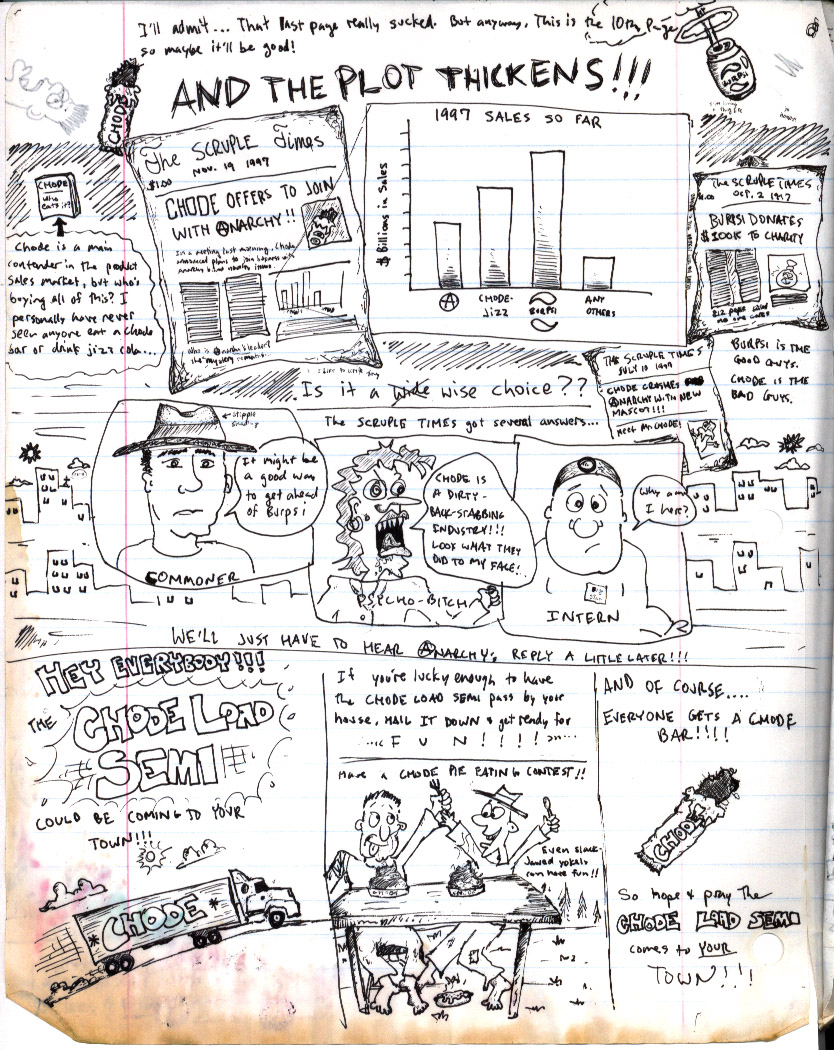 I'll admit... That last page really sucked. But anyway, This is the 10th Page
so maybe it'll be good!
AND THE PLOT THICKENS!!!
CHODE
BURPSI
CHODE
who eats it?
Chode is a main
contender in the product
sales market, but who's
buying all of this? I
personally have never
seen anyone eat a chode
bar or drink jizz cola...
The SCRUPLE Times
NOV. 19 1997
$1.00
CHODE OFFERS TO JOIN
WITH ANARCHY!!
1997 SALES SO FAR
$ Billions in Sales
A
CHODE-
JIZZ
BURPSI
ANY
OTHERS
The SCRUPLE TIMES
OCT. 2 1997
BURPSI DONATES
$100K TO CHARITY
BURPSI IS THE
GOOD GUYS.
CHODE IS THE
BAD GUYS.
THE SCRUPLE TIMES
JULY 10 1997
CHODE CRUSHES
ANARCHY WITH NEW
MASCOT!!!
MEET MR. CHODE!
Is it a wide wise choice??
The SCRUPLE TIMES got several answers...
← stipple
shading
It might be
a good way
to get ahead
of Burpsi
COMMONER
CHODE IS
A DIRTY-
BACK-STABBING
INDUSTRY!!!
LOOK WHAT THEY
DID TO MY FACE!.
PSYCHO-BITCH
Why am
I here?
INTERN
WE'LL JUST HAVE TO HEAR ANARCHY'S REPLY A LITTLE LATER!!!
HEY EVERYBODY!!!
THE
CHODE LOAD
SEMI
COULD BE COMING TO YOUR
TOWN!!!
CHODE
If you're lucky enough to have
the CHODE LOAD SEMI pass by your
house, HAIL IT DOWN & get ready for
F U N ! ! ! !
HAVE A CHODE PIE EATING CONTEST!!
Even slack-
Jawed yokals
can have fun!!
AND OF COURSE....
EVERYONE GETS A CHODE
BAR!!!!
CHODE
So hope & pray the
CHODE LOAD SEMI
comes to YOUR
TOWN!!!